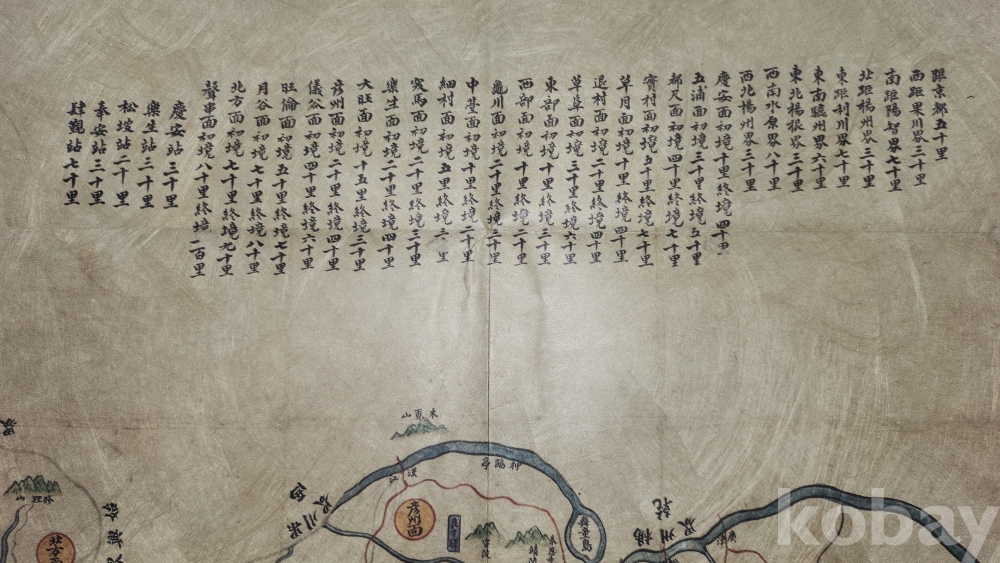 距京都五十里
西距果川界三十里
南距陽智界七十里
北距楊州界三十里
東距利川界七十里
東南驪州界六十里
東北楊根界三十里
西南水原界八十里
西北楊州界三十里
慶安面初境十里終境四十里
五浦面初境三十里終境五十里
都尺面初境四十里終境七十里
實村面初境五十里終境七十里
草月面初境十里終境四十里
退村面初境二十里終境四十里
草阜面初境三十里終境六十里
東部面初境十里終境三十里
西部面初境十里終境二十里
龜川面初境二十里終境三十里
中垈面初境十里終境二十里
細村面初境五里終境三十里
突馬面初境二十里終境三十里
樂生面初境三十里終境四十里
大旺面初境十五里終境三十里
彦州面初境二十里終境四十里
儀谷面初境四十里終境六十里
旺倫面初境五十里終境七十里
月谷面初境七十里終境八十里
北方面初境七十里終境九十里
聲串面初境八十里終境一百里
慶安站三十里
樂生站二十里
松坡站二十里
奉安站三十里
肆覲站七十里
山
漢江
狎鷗亭
彦州面
島
北方
山
kobay